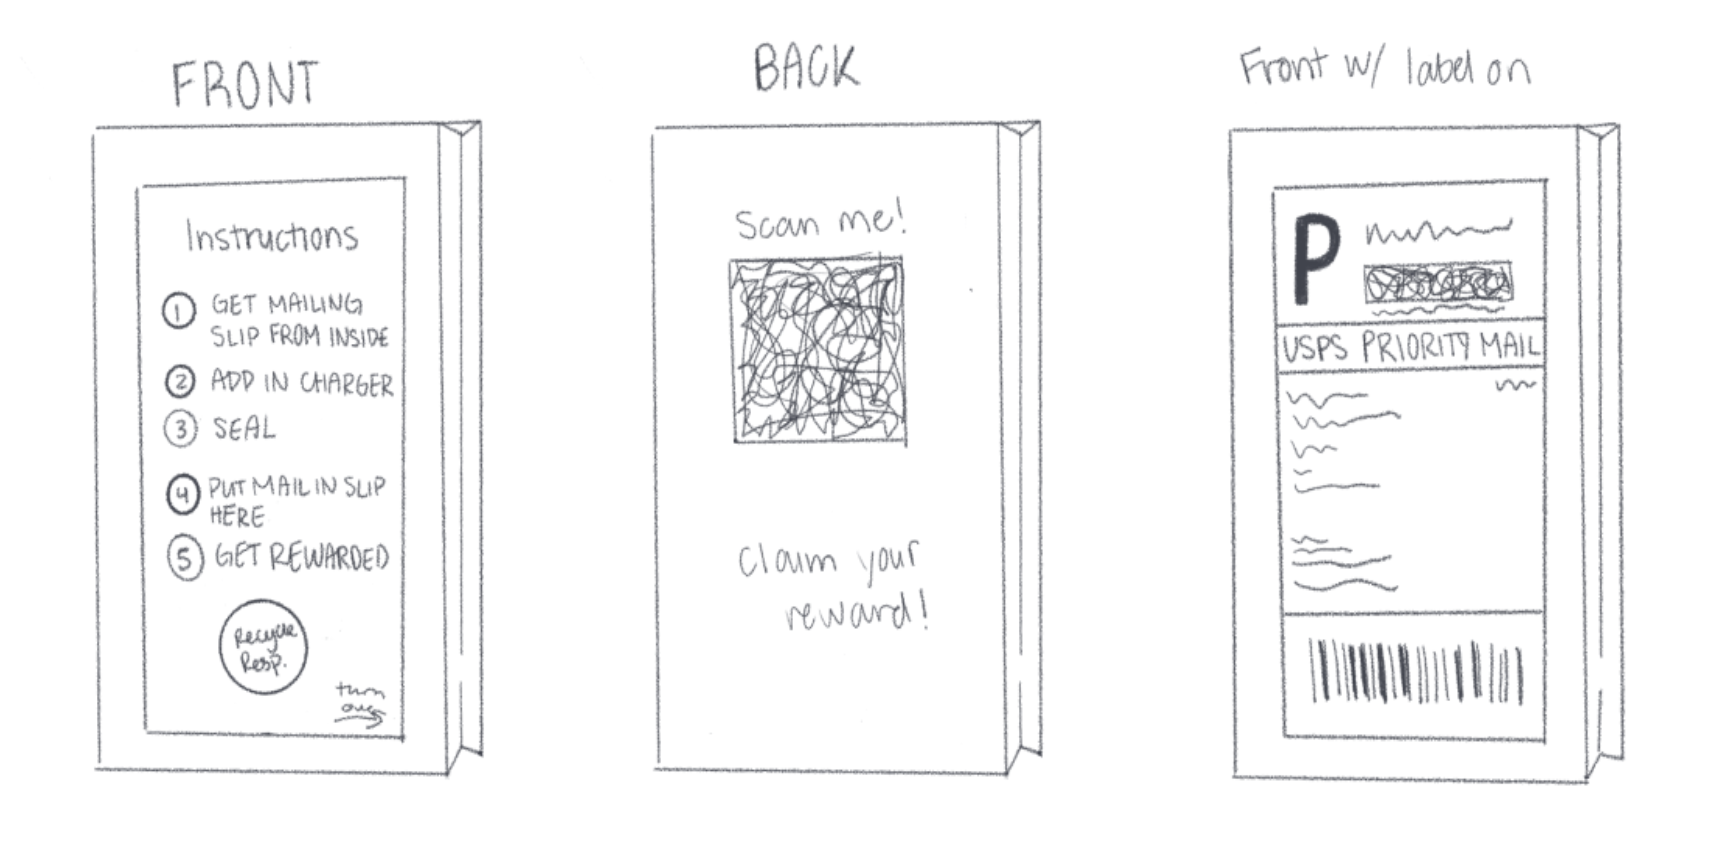 FRONT
Instructions
1 GET MAILING
SLIP FROM INSIDE
2 ADD IN CHARGER
3 SEAL
4 PUT MAIL IN SLIP
HERE
5 GET REWARDED
Recycle
Resp.
turn
over
BACK
Scan me!
Claim your
reward!
Front w/ label on
P
USPS PRIORITY MAIL